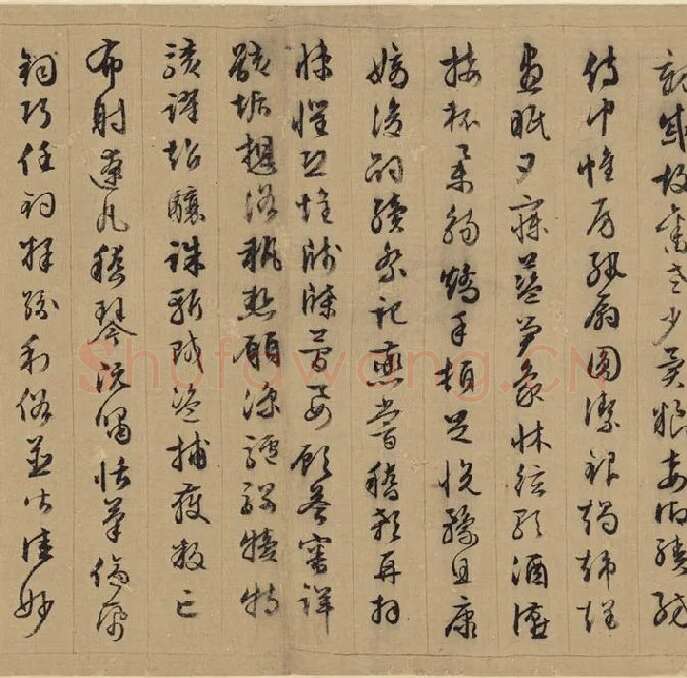 親戚故舊老少異粮妾御績紡
侍巾帷房紈扇圓潔銀燭煒煌
晝眠夕寐藍笋象床弦歌酒讌
接杯舉觴矯手頓足悅豫且康
嫡後嗣續祭祀蒸嘗稽顙再拜
悚懼恐惶牋牒簡要顧答審詳
骸垢想浴執熱願涼驢騾犢特
駭躍超驤誅斬賊盜捕獲叛亡
布射遼丸嵇琴阮嘯恬筆倫紙
鈞巧任釣釋紛利俗並皆佳妙
Shufawang.CN